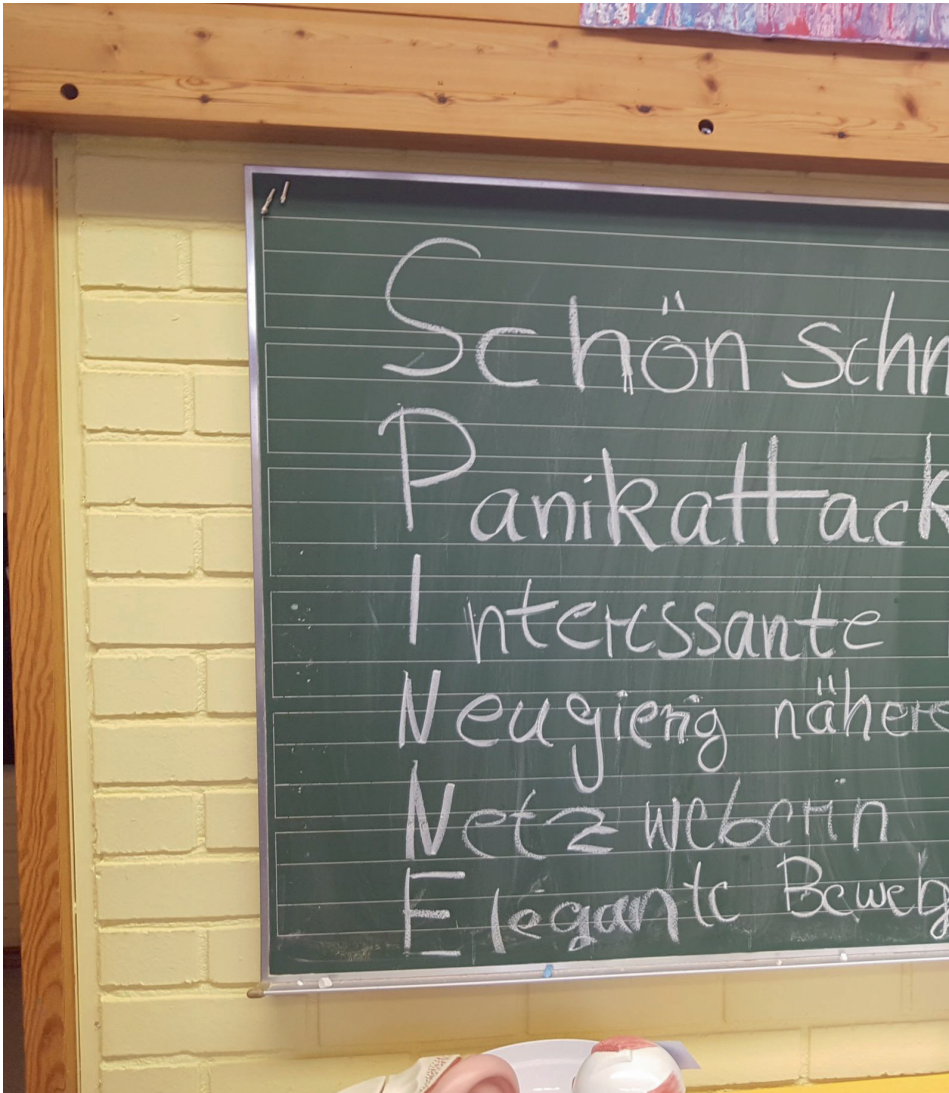 Schön schn
Panikattack
Interessante
Neugierig nähere
Netz weberin
Elegante Beweg